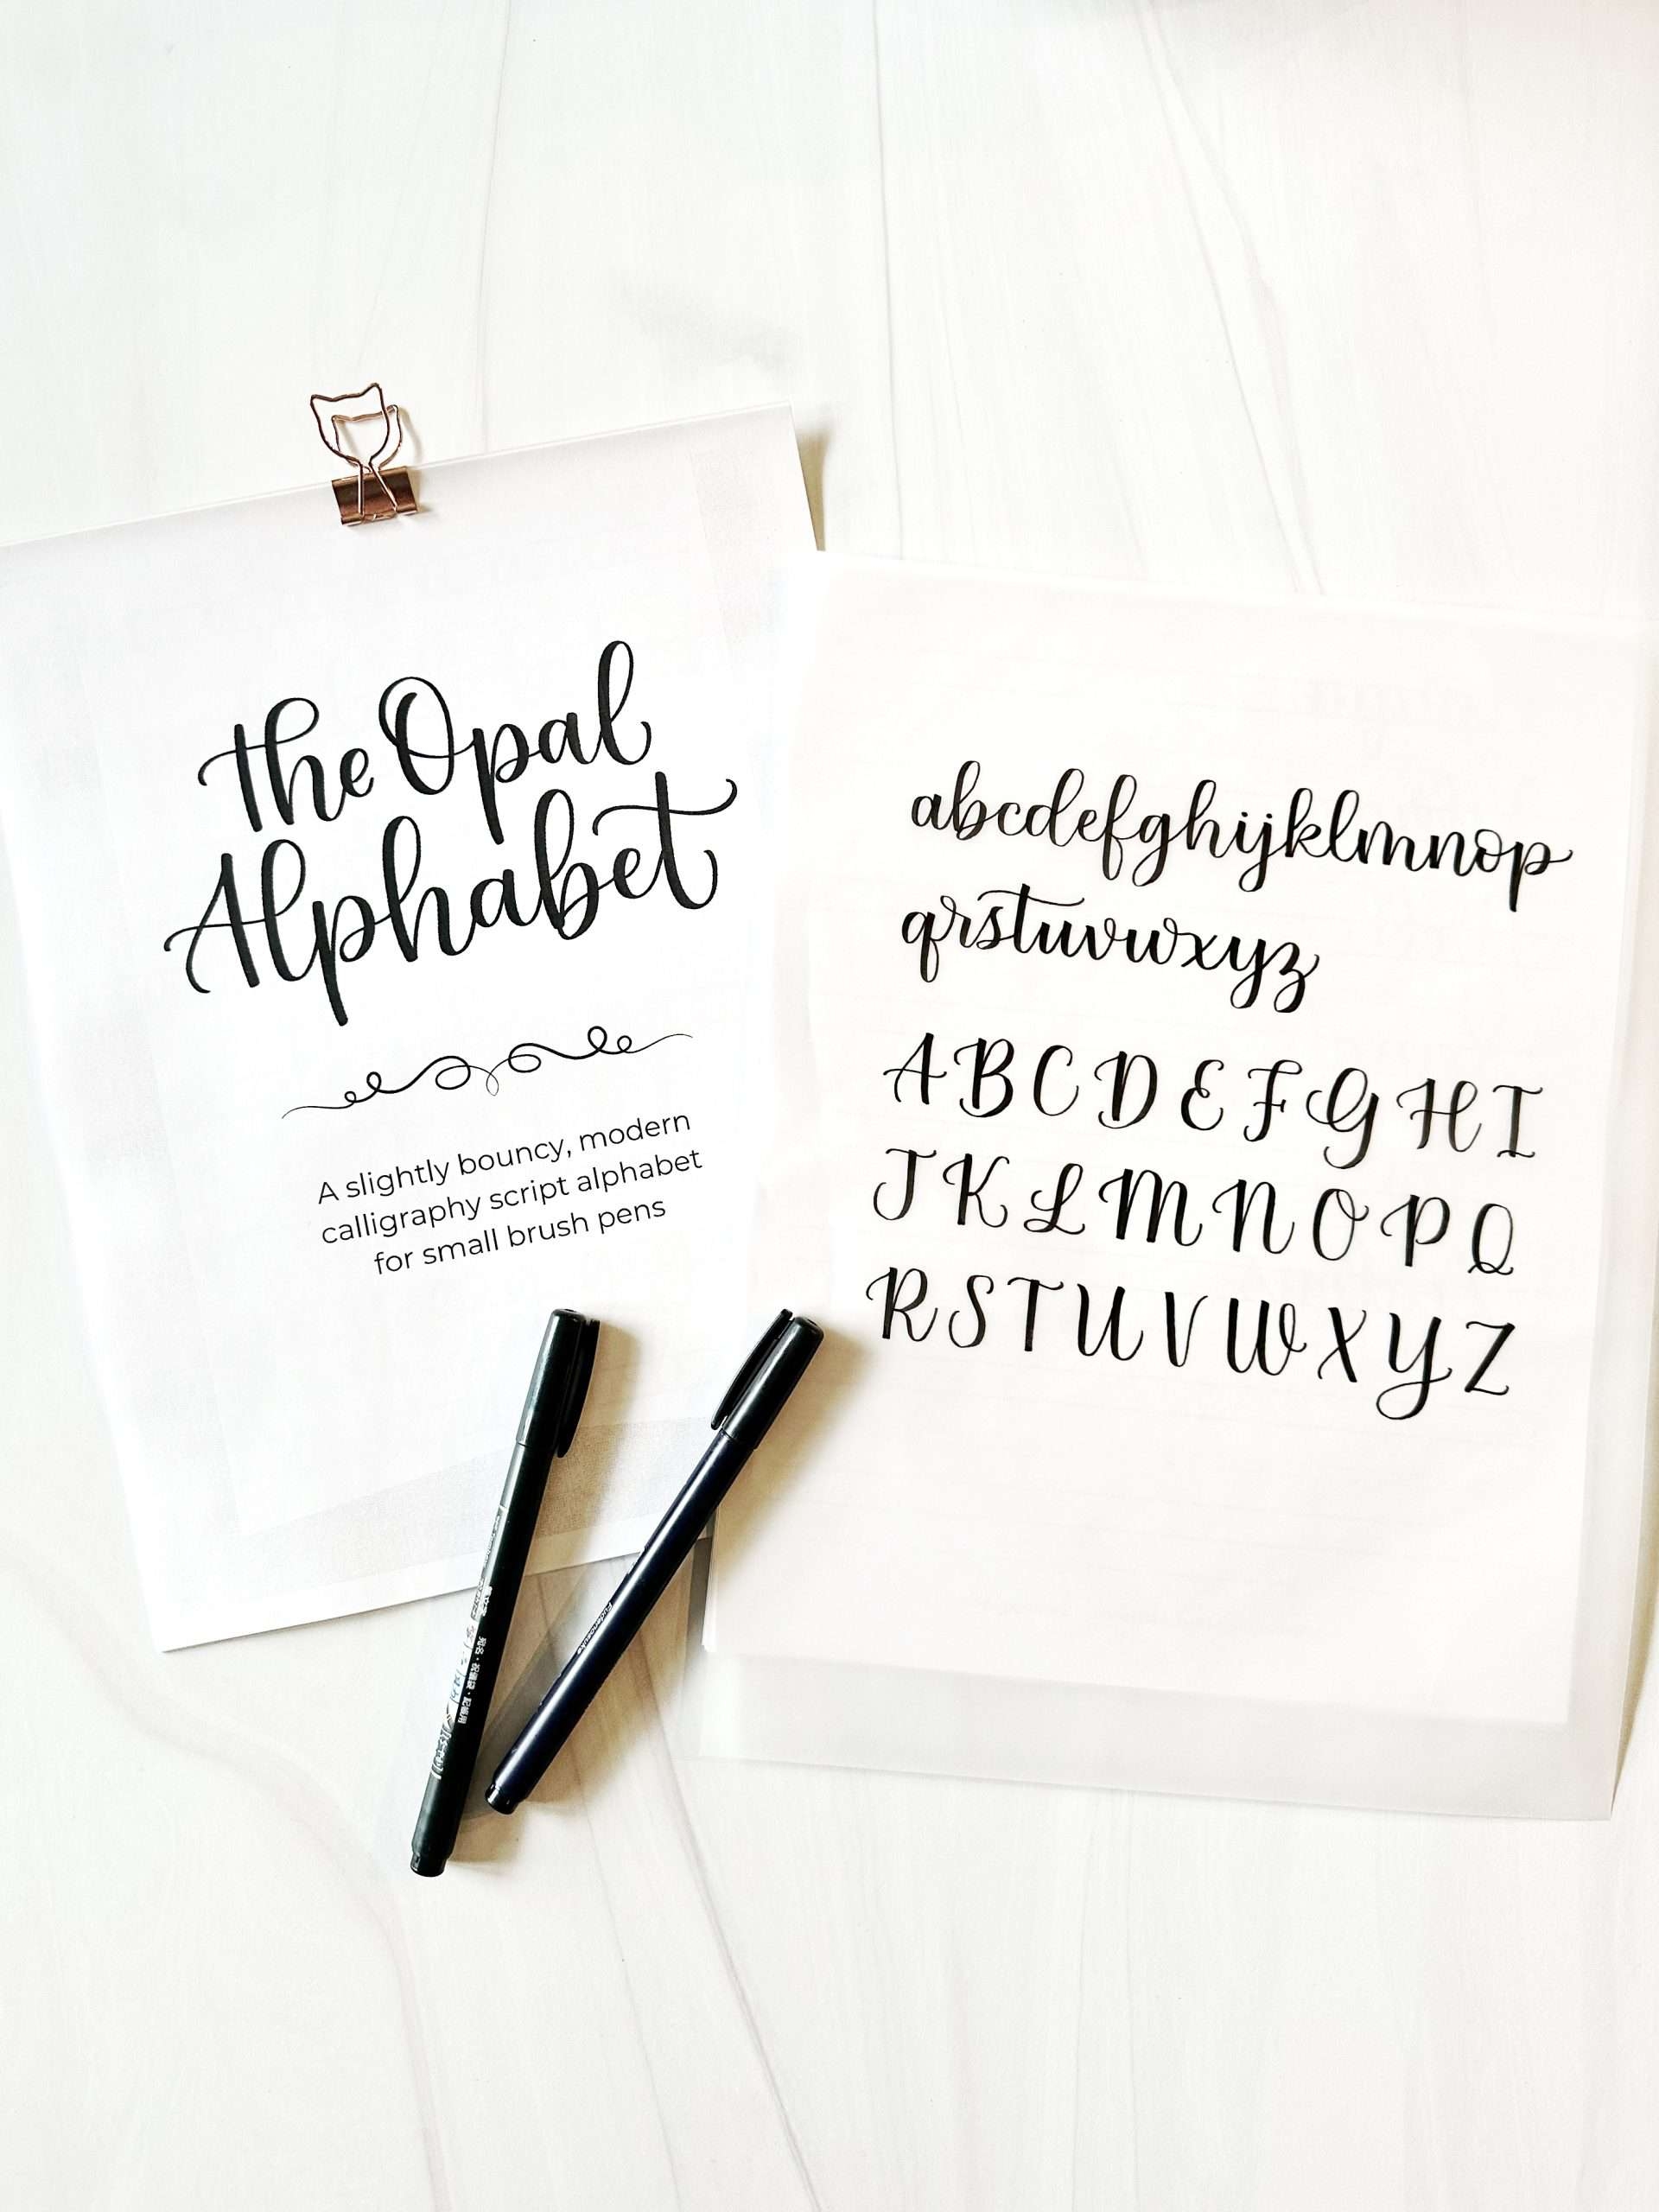 the Opal
Alphabet
A slightly bouncy, modern
calligraphy script alphabet
for small brush pens
abcdefghijklmnop
qrstuvwxyz
A B C D E F G H I
J K L M N O P Q
R S T U V W X Y Z